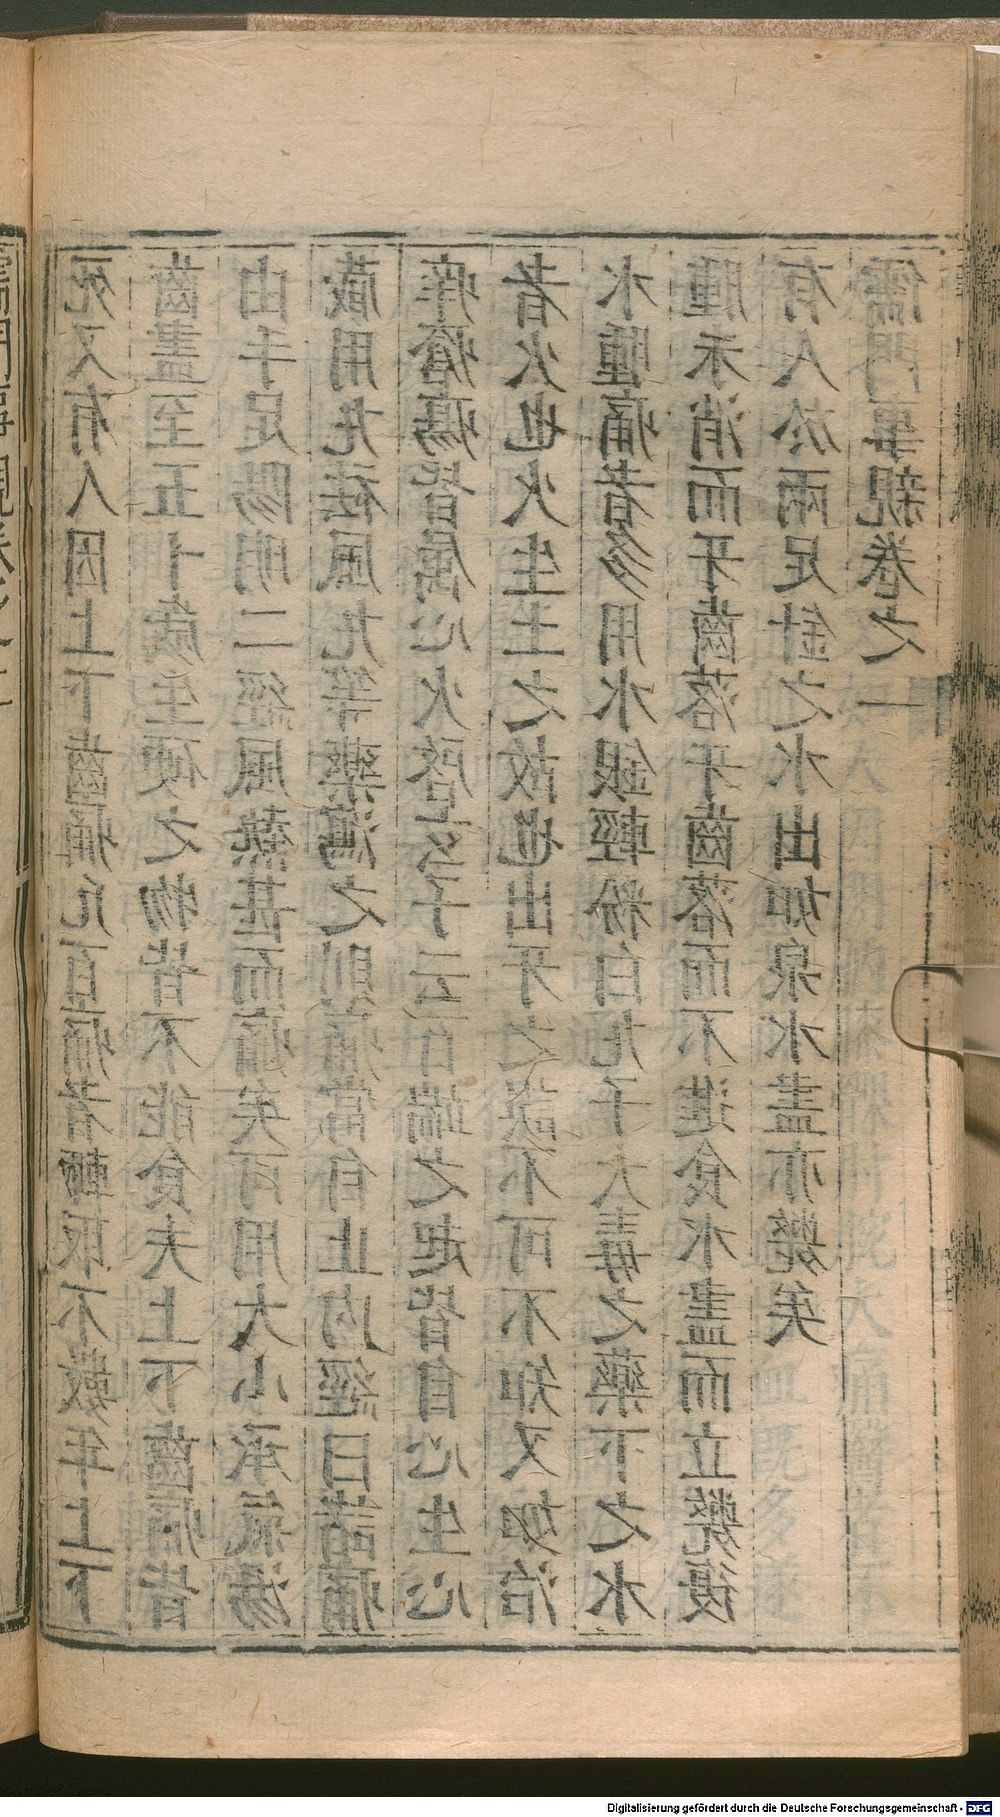 死又有人因上下齒痛凡百痛者輒取不數年上下
齒盡至五十歲生硬之物皆不能食夫上下齒痛皆
由手足陽明二經風熱甚而痛矣可用大小承氣湯
藏用丸祛風丸等藥瀉之則痛當自止內經曰諸痛
痒瘡瘍皆屬心火啓玄子云百端之起皆自心生心
者火也火生土之故也出牙之誤不可不知又如治
水腫痛者多用水銀輕粉白丸子大毒之藥下之水
腫未消而牙齒落牙齒落而不進食水盡而立斃復
有人於兩足針之水出如泉水盡亦斃矣
儒門事親卷之一
Digitalisierung gefördert durch die Deutsche Forschungsgemeinschaft - DFG